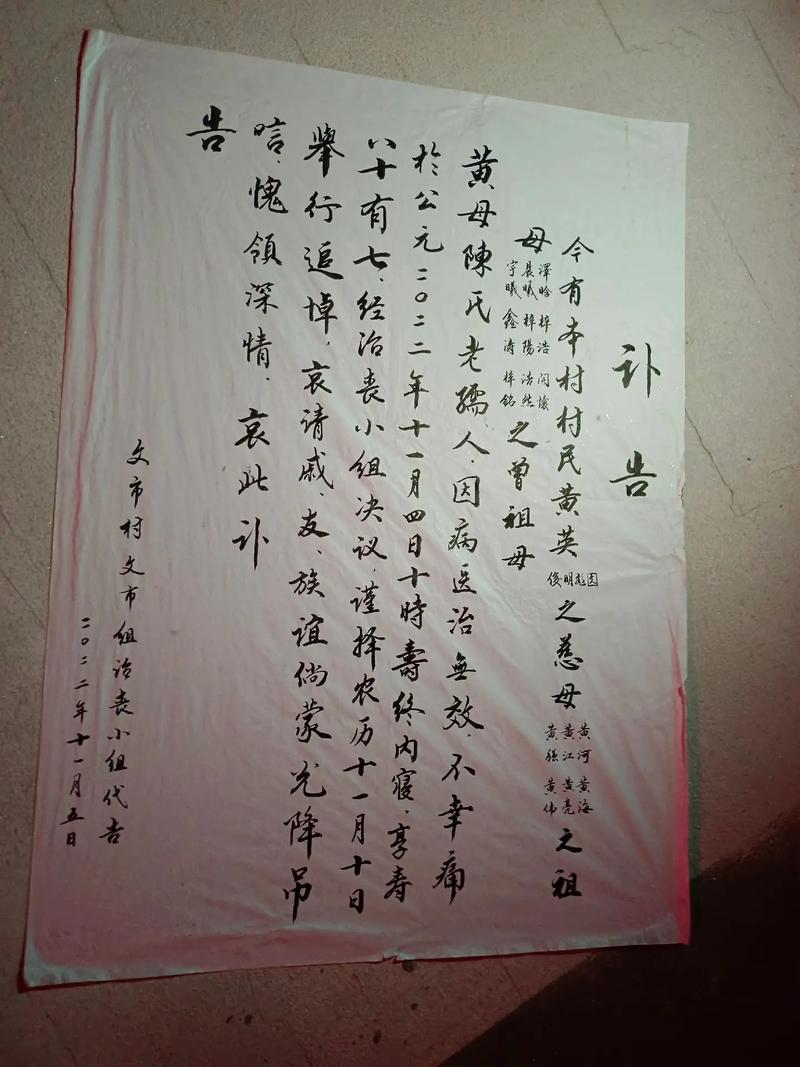 讣告
今有本村村民黄英俊明彪因之慈母黄河黄海黄江黄亮黄强黄伟之祖
母澤晗梓浩闫懷晨曦梓陽浩然宇曦鑫濤梓銘之曾祖母
黄母陳氏老孺人因病医治無效.不幸痛
於公元二〇二二年十一月四日十時壽终内寝.享寿
八十有七、经治丧小组决议.谨择农历十一月十日
举行追悼.哀请戚、友、族谊倘蒙光降吊
唁、愧領深情.哀此讣
告
文市村文市组治丧小组代告
二〇二二年十一月五日